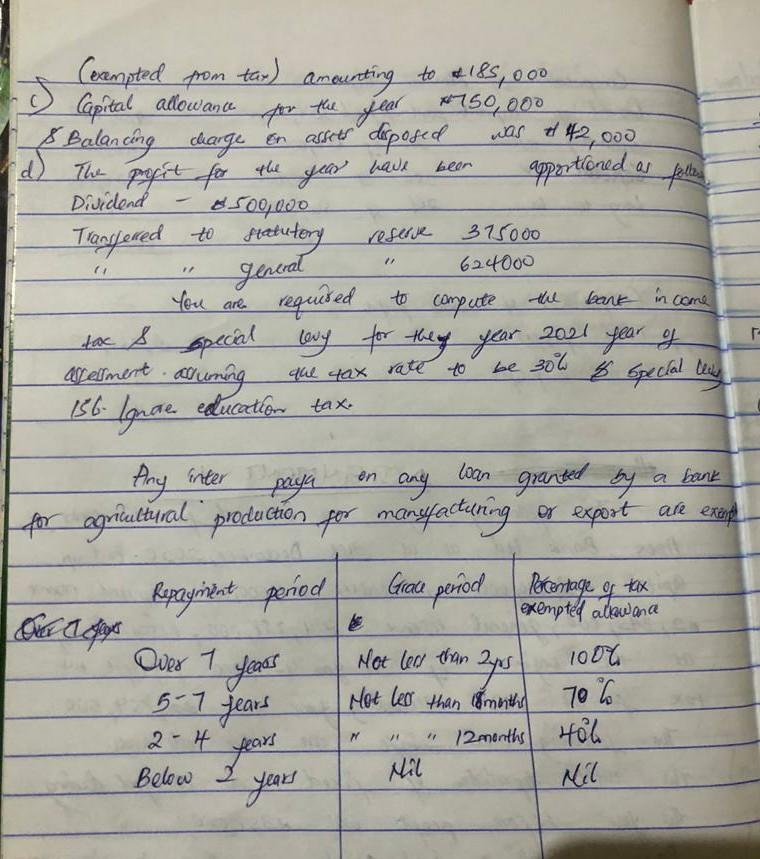 (exempted from tax) amounting to ₦185,000
c) Capital allowance for the year ₦750,000
& Balancing charge on assets disposed was ₦42,000
d) The profit for the year have been apportioned as follow
Dividend - ₦500,000
Transferred to statutory reserve 375000
" " general " 624000
You are required to compute the bank income
tax & special levy for the year 2021 year of
assessment. assuming the tax rate to be 30% & special levy
15%. Ignore education tax.
Any inter paya on any loan granted by a bank
for agricultural production for manufacturing or export are exemp
Repayment period Grace period Percentage of tax
exempted allowance
Over 7 years Not less than 2yrs 100%
5-7 years Not less than 18months 70%
2-4 years " " " 12months 40%
Below 2 years Nil Nil